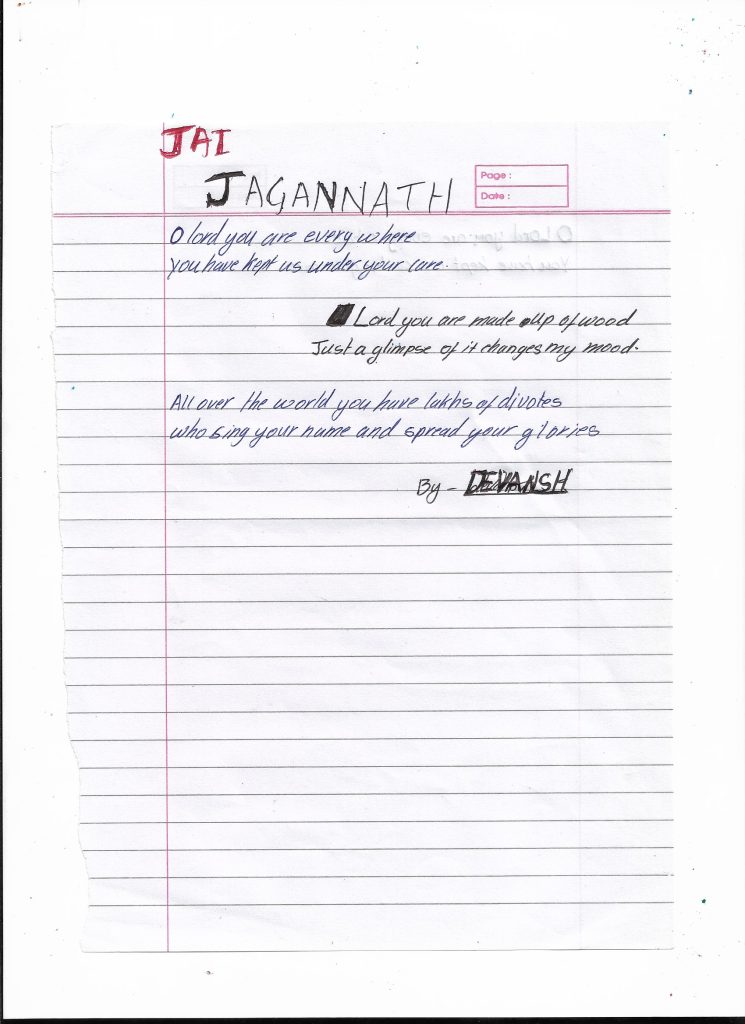 JAI
JAGANNATH
Page :
Date :
O lord you are every where
You have kept us under your care.
Lord you are made up of wood
Just a glimpse of it changes my mood.
All over the world you have lakhs of divotes
who sing your name and spread your glories
By - DEVANSH